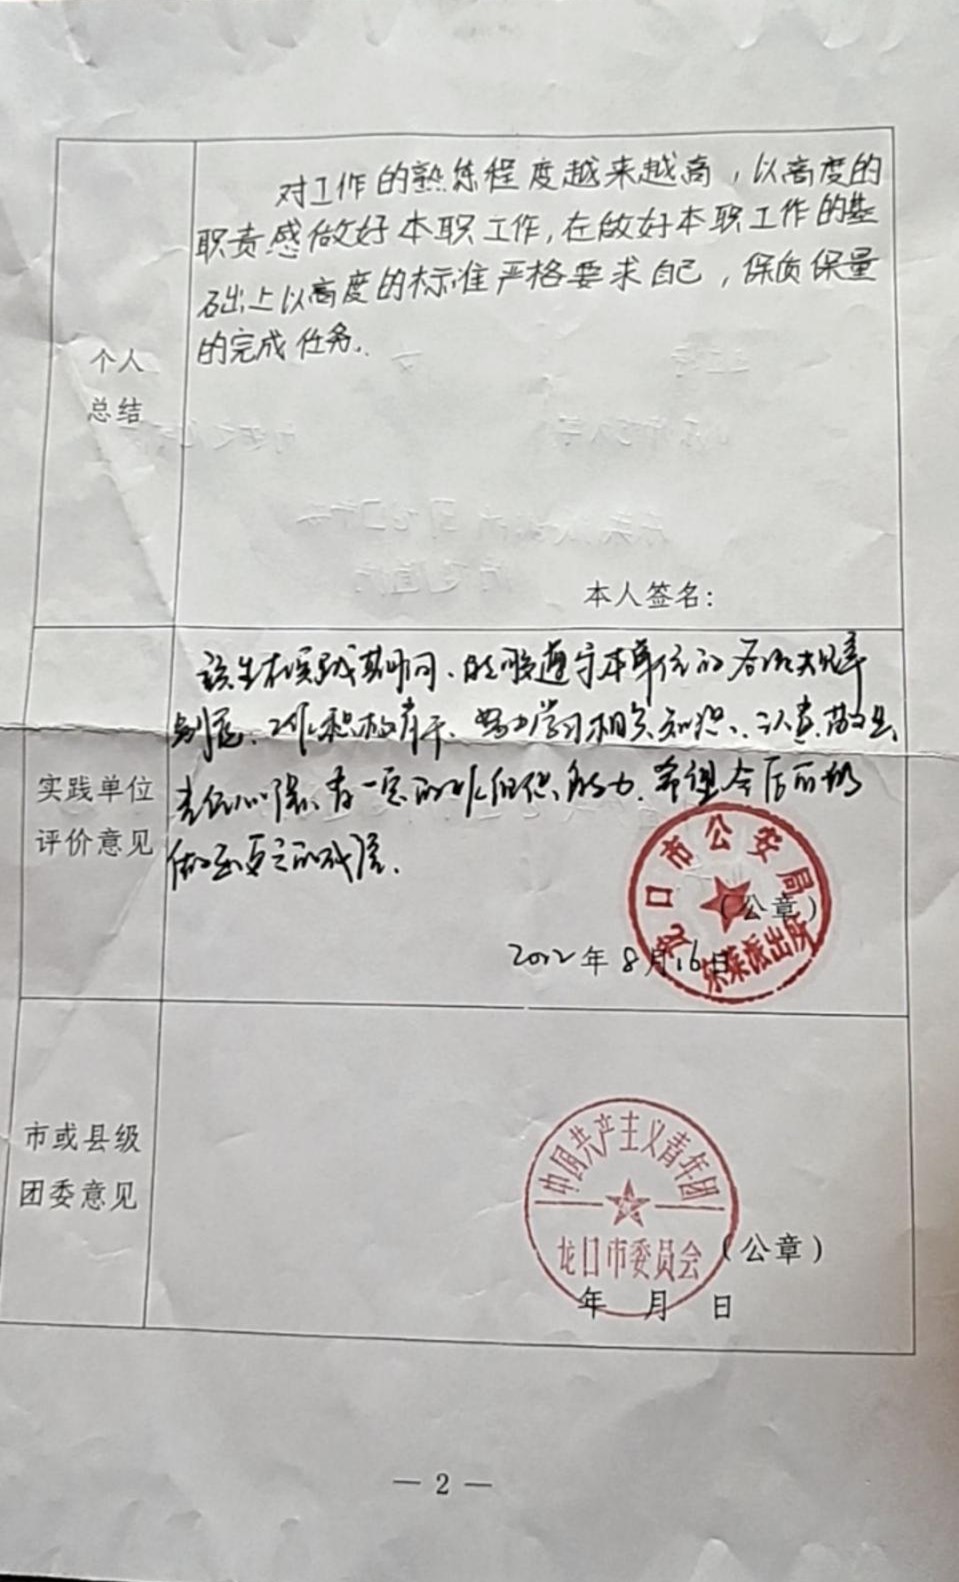 对工作的熟练程度越来越高，以高度的
职责感做好本职工作，在做好本职工作的基
础上以高度的标准严格要求自己，保质保量
的完成任务。
个人
总结
本人签名：
该生在实践期间、能够遵守本单位的各项规章
制度、工作积极肯干、努力学习相关知识、认真敬业
责任心强、有一定的组织能力，希望今后
做出更大的成绩．
实践单位
评价意见
龙口市公安局
东莱派出所
（公章）
2022年8月16日
市或县级
团委意见
中国共产主义青年团
龙口市委员会
（公章）
年 月 日
— 2 —